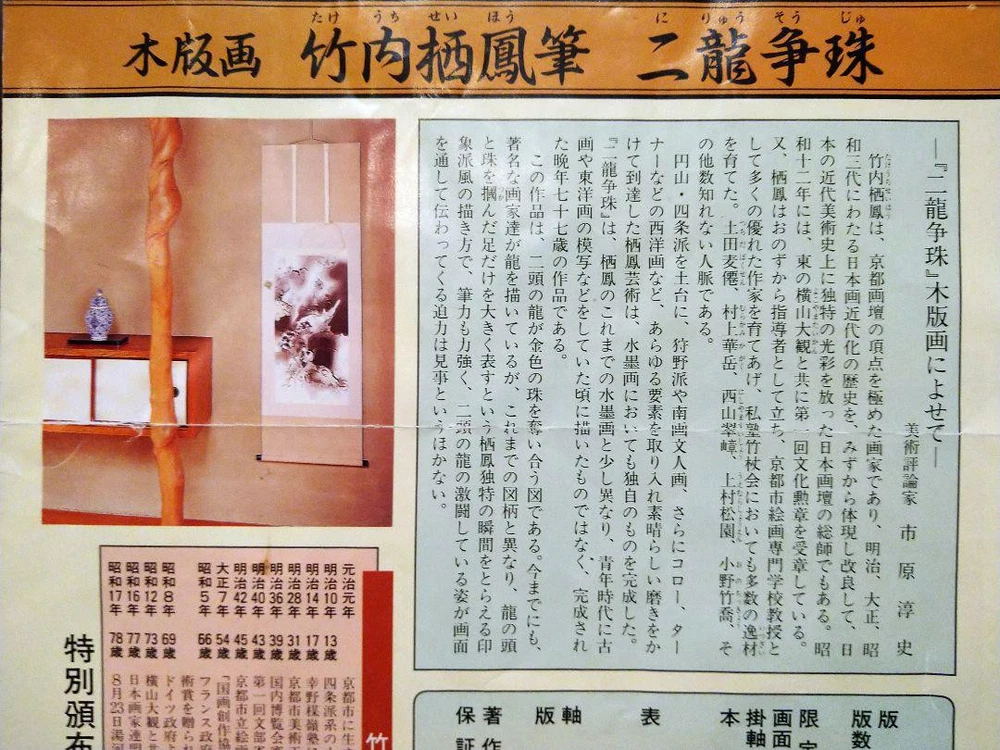 木版画 竹内栖鳳筆 二龍争珠
たけ うち せい ほう に りゅう そう じゅ
―『二龍争珠』木版画によせて―
美術評論家 市原淳史
竹内栖鳳は、京都画壇の頂点を極めた画家であり、明治、大正、昭
和三代にわたる日本画近代化の歴史を、みずから体現し改良して、日
本の近代美術史上に独特の光彩を放った日本画壇の総師でもある。昭
和十二年には、東の横山大観と共に第一回文化勲章を受章している。
又、栖鳳はおのずから指導者として立ち、京都市絵画専門学校教授と
して多くの優れた作家を育てあげ、私塾竹杖会においても多数の逸材
を育てた。土田麦僊、村上華岳、西山翠嶂、上村松園、小野竹喬、そ
の他数知れない人脈である。
円山・四条派を土台に、狩野派や南画文人画、さらにコロー、ター
ナーなどの西洋画など、あらゆる要素を取り入れ素晴らしい磨きをか
けて到達した栖鳳芸術は、水墨画においても独自のものを完成した。
『二龍争珠』は、栖鳳のこれまでの水墨画と少し異なり、青年時代に古
画や東洋画の模写などをしていた頃に描いたものではなく、完成され
た晩年七十七歳の作品である。
この作品は、二頭の龍が金色の珠を奪い合う図である。今までにも、
著名な画家達が龍を描いているが、これまでの図柄と異なり、龍の頭
と珠を摑んだ足だけを大きく表すという栖鳳独特の瞬間をとらえる印
象派風の描き方で、筆力も力強く、二頭の龍の激闘している姿が画面
を通して伝わってくる迫力は見事というほかない。
元治元年 京都市に生
明治10年 13歳 四条派系の
明治14年 17歳 幸野楳嶺塾
明治28年 31歳 京都市美術
明治36年 39歳 国内博覧会
明治40年 43歳 第一回文部省
明治42年 45歳 京都市立絵
大正7年 54歳 「国画創作協
昭和5年 66歳 フランス政府
術賞を贈られ
昭和8年 69歳 ドイツ政府よ
昭和12年 73歳 横山大観と共
昭和16年 77歳 日本画家連盟
昭和17年 78歳 8月23日湯河
竹
特別頒布
版
版数
限定
画面
掛軸
本
表
軸
版
著作
保証